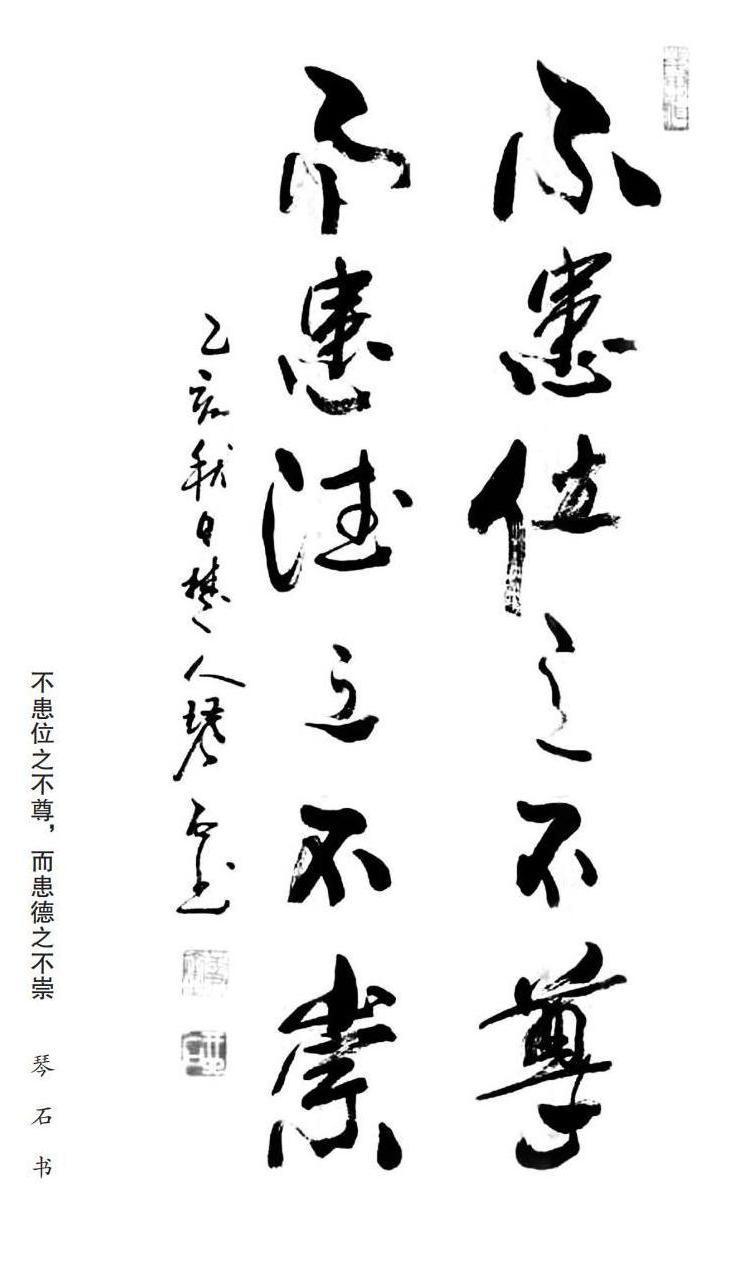 不患位之不尊
而患德之不崇
乙亥秋日楚人琴石书
不患位之不尊，而患德之不崇 琴石书